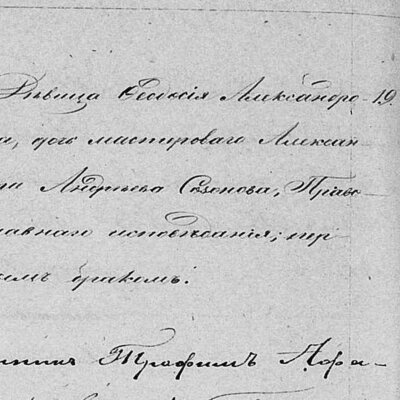 Девица Ѳеодосія Александро- 19.
а, дочь мастероваго Алексан
Андреева Созонова, Право-
славнаго исповѣданія; пер
вымъ бракомъ.
Трофимъ Афа-